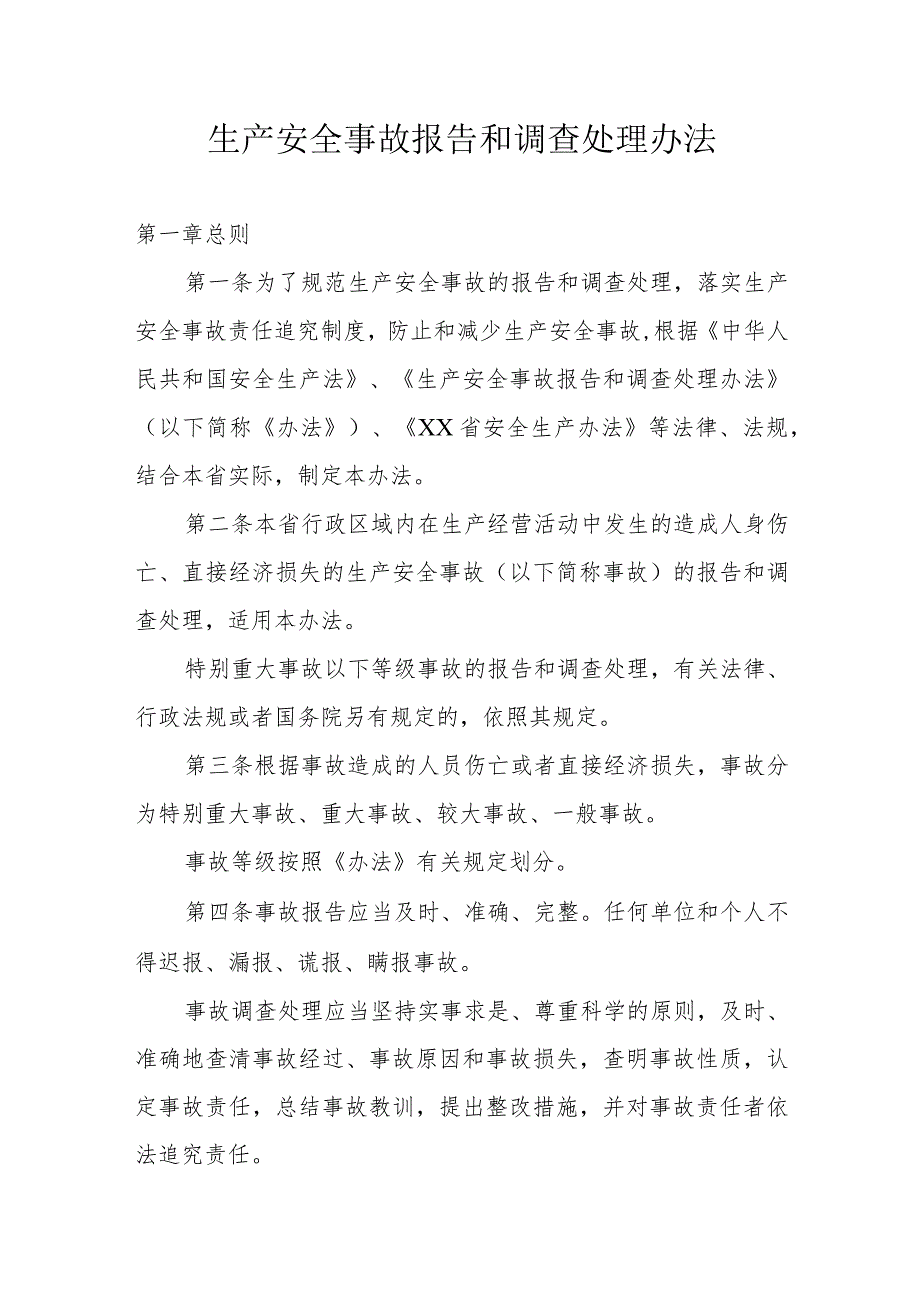 生产安全事故报告和调查处理办法
第一章总则
第一条为了规范生产安全事故的报告和调查处理，落实生产
安全事故责任追究制度，防止和减少生产安全事故,根据《中华人
民共和国安全生产法》、《生产安全事故报告和调查处理办法》
（以下简称《办法》）、《XX 省安全生产办法》等法律、法规，
结合本省实际，制定本办法。
第二条本省行政区域内在生产经营活动中发生的造成人身伤
亡、直接经济损失的生产安全事故（以下简称事故）的报告和调
查处理，适用本办法。
特别重大事故以下等级事故的报告和调查处理，有关法律、
行政法规或者国务院另有规定的，依照其规定。
第三条根据事故造成的人员伤亡或者直接经济损失，事故分
为特别重大事故、重大事故、较大事故、一般事故。
事故等级按照《办法》有关规定划分。
第四条事故报告应当及时、准确、完整。任何单位和个人不
得迟报、漏报、谎报、瞒报事故。
事故调查处理应当坚持实事求是、尊重科学的原则，及时、
准确地查清事故经过、事故原因和事故损失，查明事故性质，认
定事故责任，总结事故教训，提出整改措施，并对事故责任者依
法追究责任。